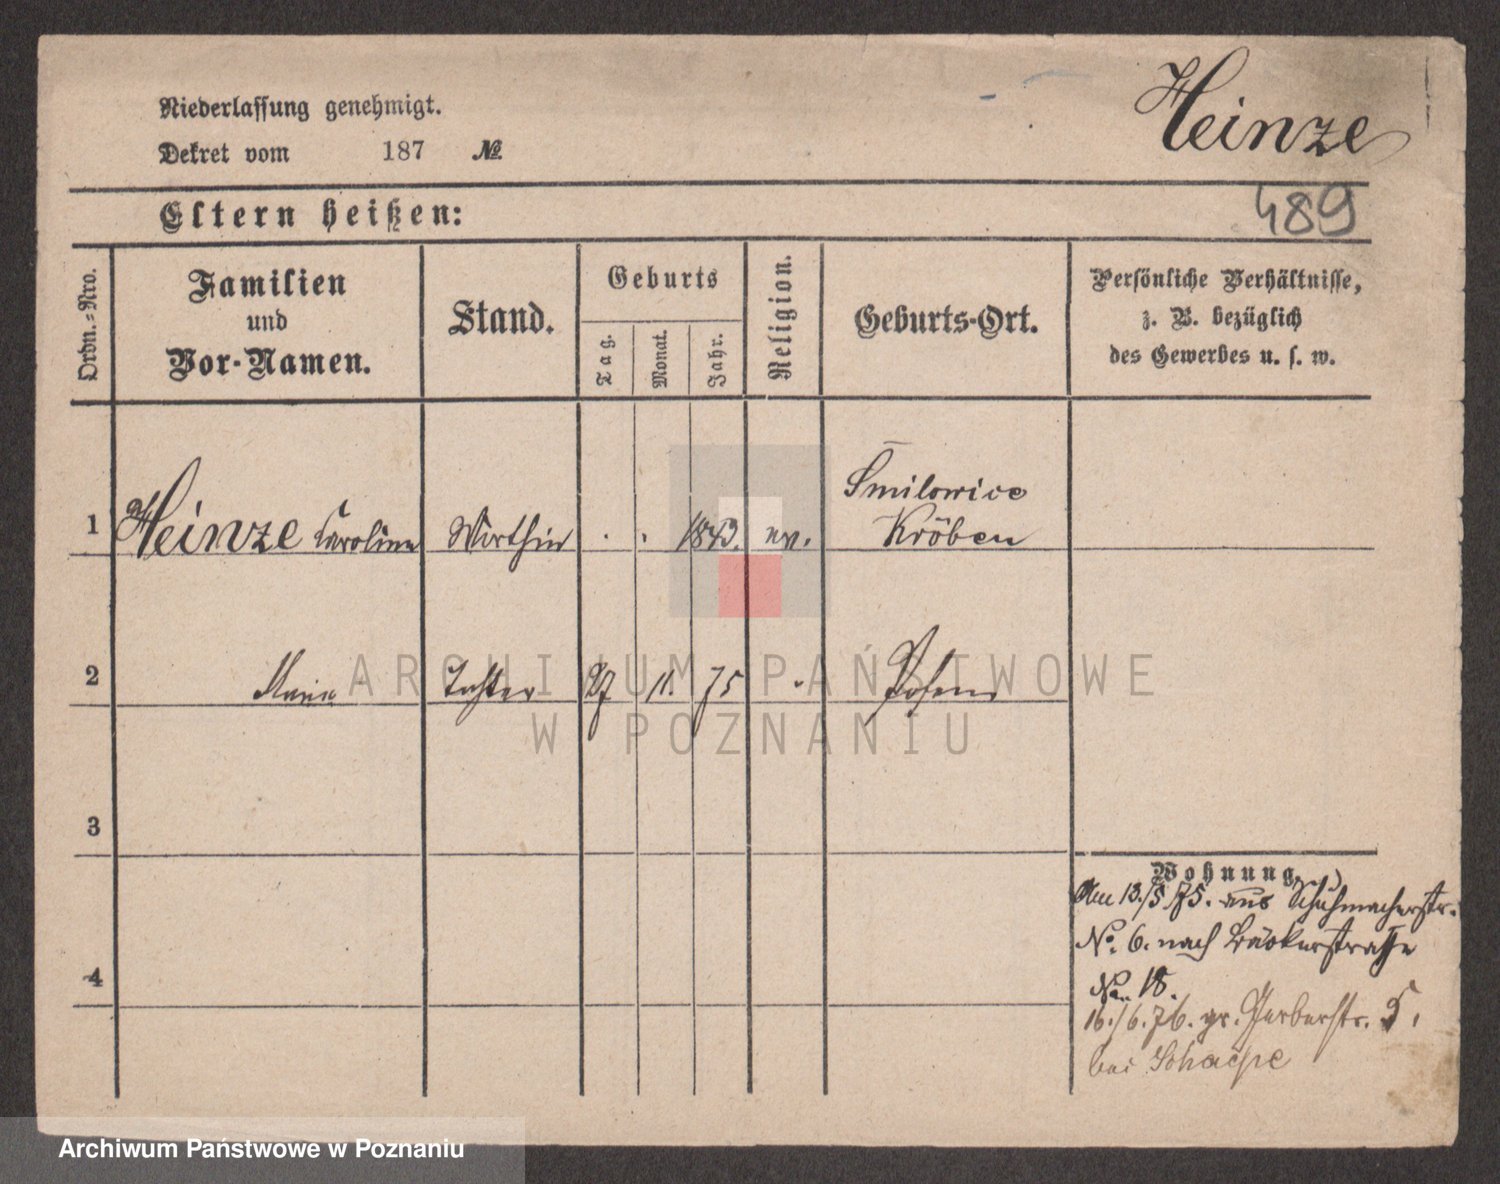 Heinze
Niederlassung genehmigt.
Dekret vom 187 №
489
Eltern heißen:
Ordn.-Nro.
Familien
und
Vor-Namen.
Stand.
Geburts
Tag.
Monat.
Jahr.
Religion.
Geburts-Ort.
Persönliche Verhältnisse,
z. B. bezüglich
des Gewerbes u. s. w.
1 Heinze Caroline Wirthin . . 1843. ev. Smilowice
Kröben
2 Maria Tochter 27 11. 75 Posen
3
4
Wohnung.
Am 13./5 75. aus Schuhmacherstr.
No. 6. nach Bäckerstraße
No. 18.
16./6. 76. gr. Gerberstr. 5.
bei Schaepe
ARCHIWUM PAŃSTWOWE
W POZNANIU
Archiwum Państwowe w Poznaniu